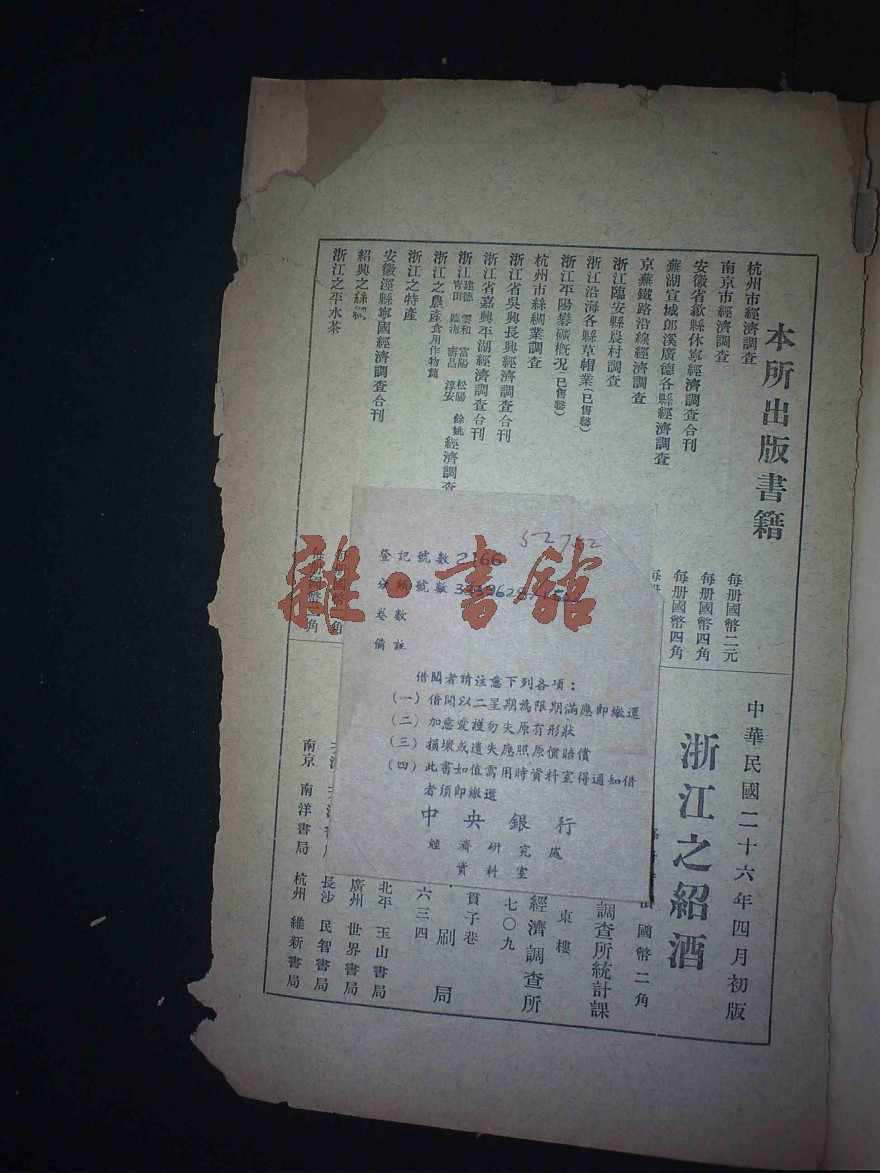 本所出版書籍
杭州市經濟調查
南京市經濟調查
安徽省歙縣休寧經濟調查合刊
蕪湖宣城郎溪廣德各縣經濟調查
京蕪鐵路沿線經濟調查
浙江臨安縣農村調查
浙江沿海各縣草帽業(已售罄)
浙江平陽礬礦概況(已售罄)
杭州市絲綢業調查
浙江省吳興長興經濟調查合刊
浙江省嘉興平湖經濟調查合刊
浙江建德 雲和 富陽 松陽 餘姚
青田 臨海 壽昌 淳安 經濟調查
浙江之農產食用作物篇
浙江之特產
安徽涇縣寧國經濟調查合刊
紹興之絲綢
浙江之平水茶
每册國幣二元
每册國幣四角
每册國幣四角
每册國幣 角
每册國幣二角
中華民國二十六年四月初版
浙江之紹酒
國幣二角
調查所統計課
東樓
經濟調查所
七〇九
貫子巷
刷局
六三四
北平 玉山書局
廣州 世界書局
長沙 民智書局
南京 南洋書局 杭州 維新書局
52752
登記號數 2166
分類號數
卷數
備註
借閱者請注意下列各項:
(一) 借閱以二星期為限期滿應卽繳還
(二) 加意愛護勿失原有形狀
(三) 損壞或遺失應照原價賠償
(四) 此書如值需用時資料室得通知借
者須卽繳還
中央銀行
經濟研究處
資料室
雜·書館